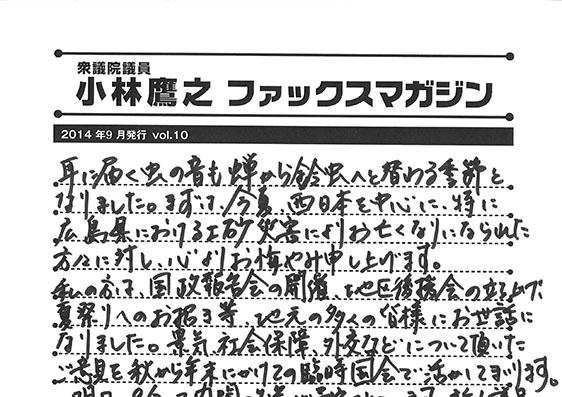 衆議院議員
小林鷹之 ファックスマガジン
2014年9月発行 vol.10
耳に届く虫の音も蝉から鈴虫へと替わる季節と
なりました。まずは、今夏、西日本を中心に、特に
広島県における土砂災害によりお亡くなりになられた
方々に対し、心よりお悔やみ申し上げます。
私の方は、国政報告会の開催、地区後援会の立上げ、
夏祭りへのお招き等、地元の多くの皆様にお世話に
なりました。景気、社会保障、外交などについて頂いた
ご意見を秋から年末にかけての臨時国会で活かしてまいります。